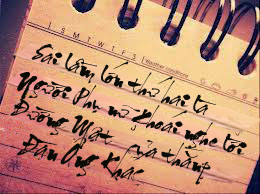 S M T W T F S Weather conditions
Sai lầm lớn thứ hai là
Người Phụ nữ Khoái nghe lời
Đường Mật của thằng
Đàn Ông Khác